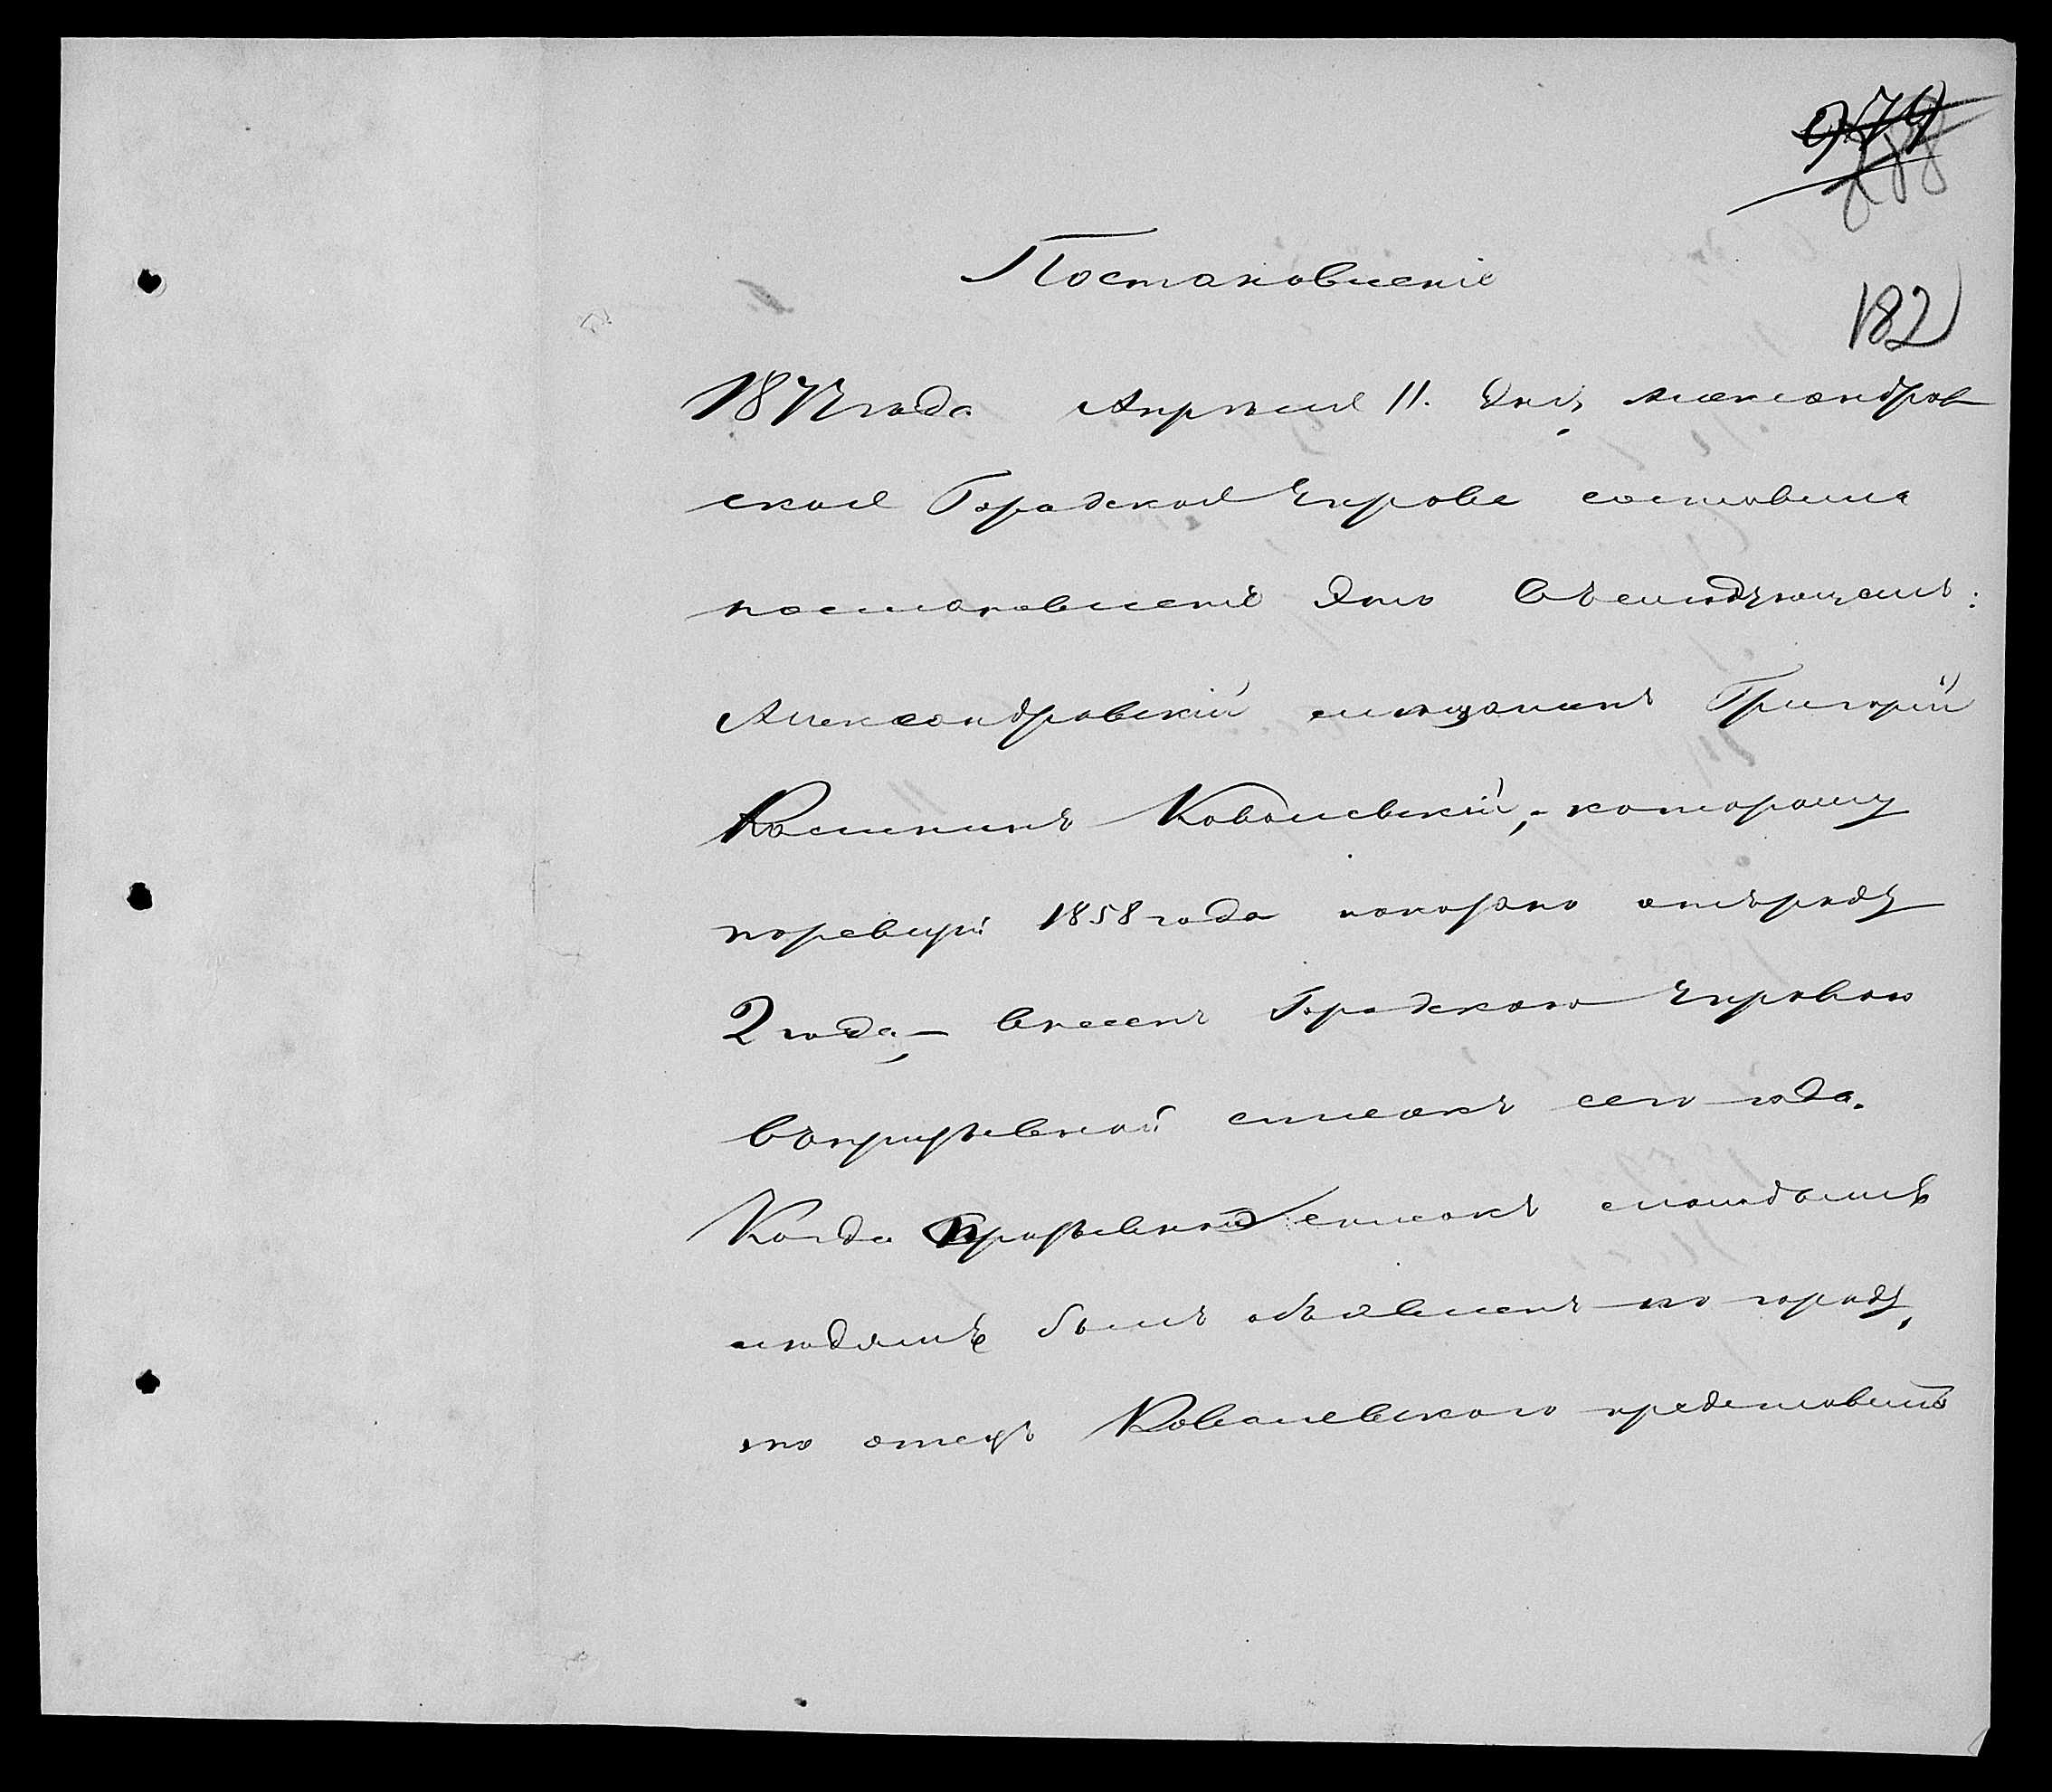 979
288
Постановленіе
182
1877 года Апрѣля 11. дня, Александров
ская Городская Управа составила
постановленіе это въ слѣдующемъ:
Александровскій мѣщанинъ Григорій
Ковалевскій, - которому
по ревизіи 1858 года показано отъ роду
2 года, - внесенъ Городскою Управою
въ призывной списокъ сего года.
Когда призывной списокъ молодымъ
людямъ былъ объявленъ по городу,
то отецъ Ковалевского представилъ